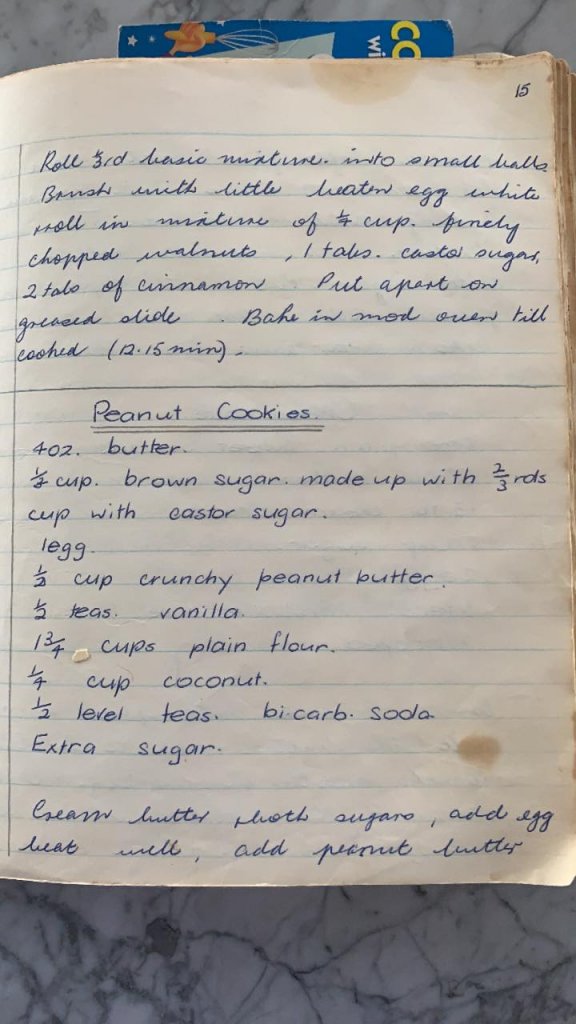 CO
wi
15
Roll ⅓rd basic mixture. into small balls
Brush with little beaten egg white
+roll in mixture of ¼ cup. finely
chopped walnuts, 1 tabs. castor sugar,
2 tabs of cinnamon Put apart on
greased slide . Bake in mod oven till
cooked (12.15 min).
Peanut Cookies.
4oz. butter.
cup. brown sugar. made up with ⅔rds
cup with castor sugar.
1egg.
½ cup crunchy peanut butter.
½ teas. vanilla.
1¾ cups plain flour.
¼ cup coconut.
½ level teas. bi.carb. soda
Extra sugar.
Cream butter +both sugars, add egg
beat well, add peanut butter